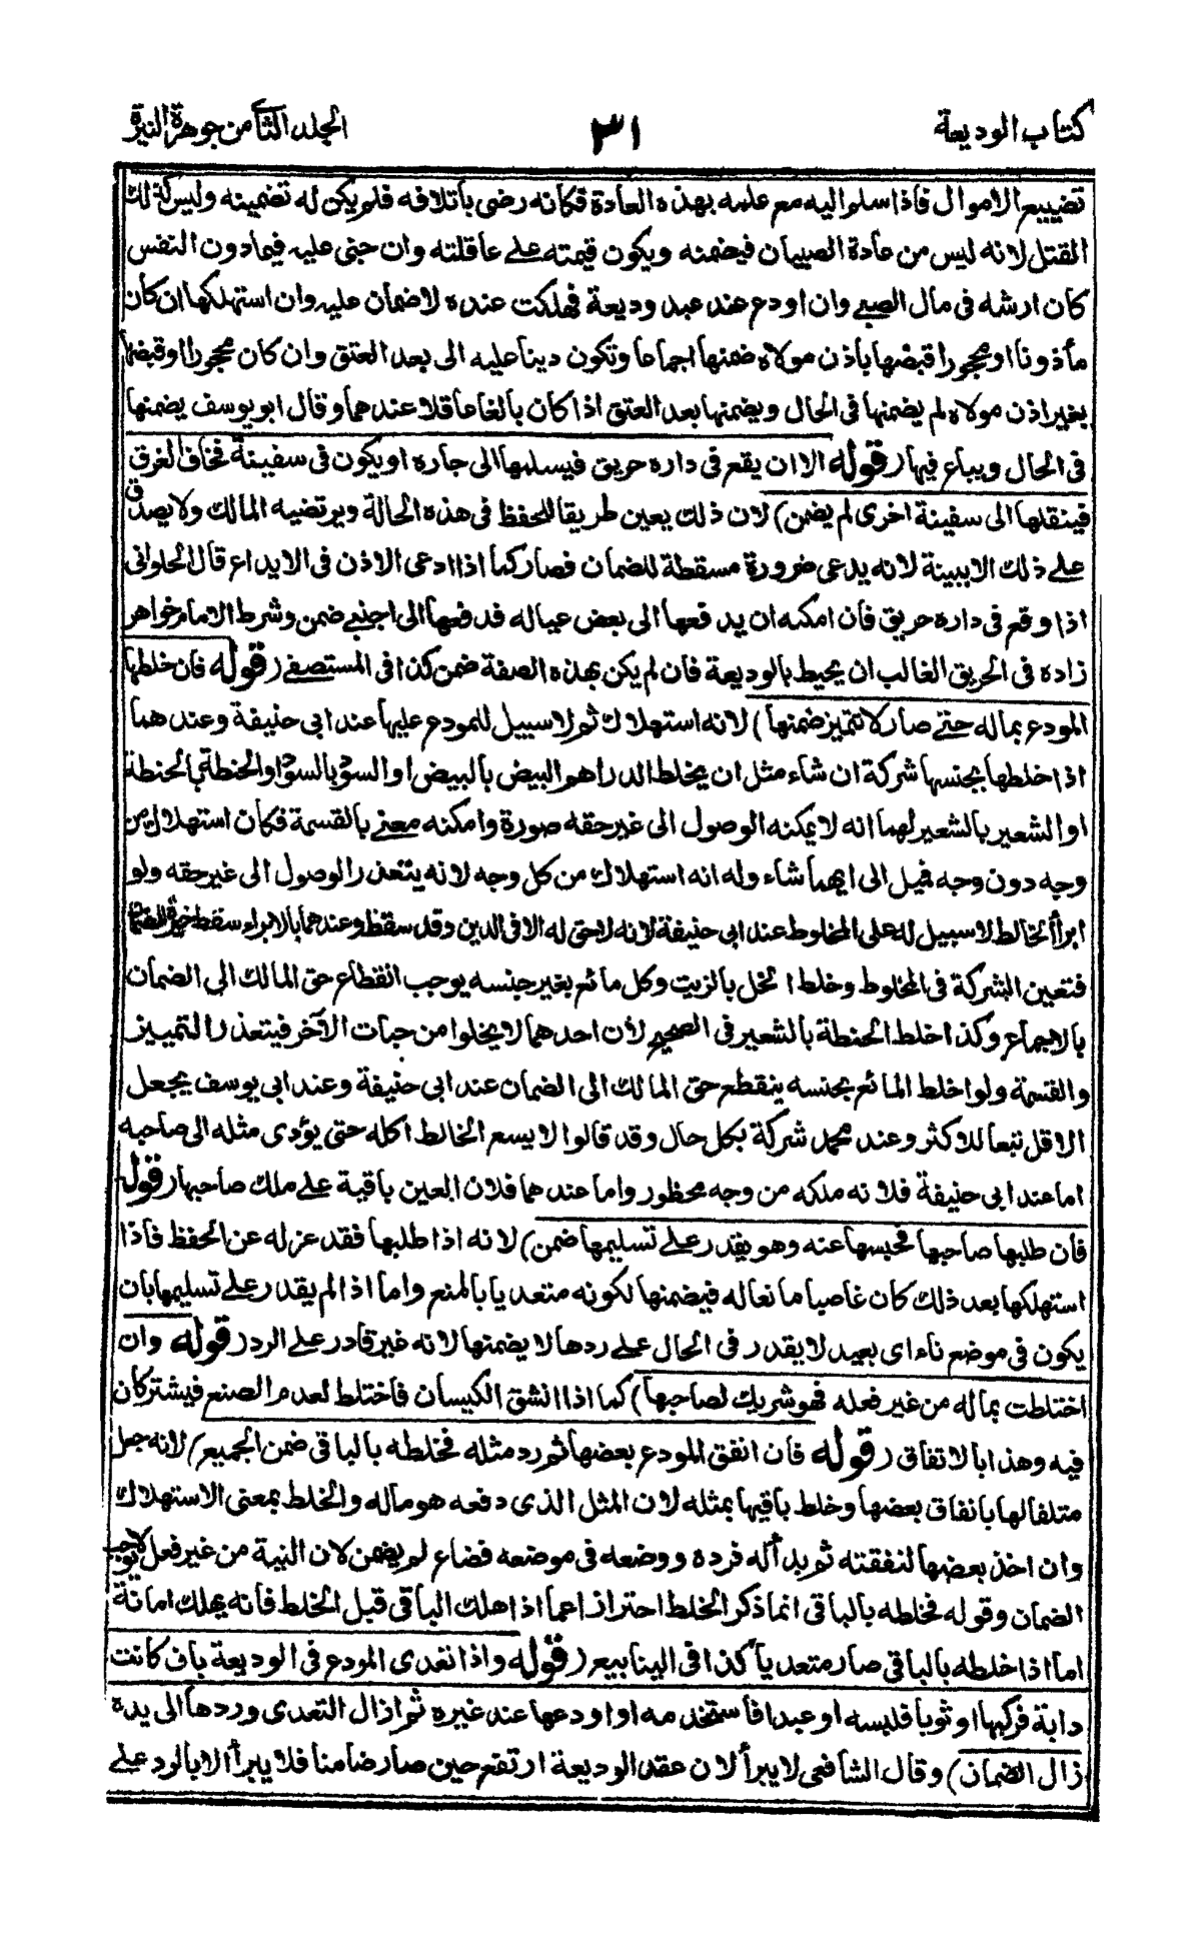 كتاب الوديعة
٣١
الجلد الثاني من جوهرة النيرة
تضييع الاموال فاذا سلوا اليه مع علمه بهذه العادة فكانه رضى باتلافه فلم يكن له تضمينه وليس كذلك
القتل لانه ليس من عادة الصبيان فيضمنه ويكون قيمته على عاقلته وان جنى عليه فيمادون النفس
كان ارشه فى مال الصبي وان اودع عند عبد وديعة فهلكت عنده لاضمان عليه وان استهلكها ان كان
مأذونا او محجورا قبضها باذن مولاه ضمنها اجماعا وتكون دينا عليه الى بعد العتق وان كان محجورا او قبضها
بغير اذن مولاه لم يضمنها فى الحال ويضمنها بعد العتق اذا كان بالغا عاقلا عندهما وقال ابو يوسف يضمنها
فى الحال ويباع فيها (قوله الا ان يقع فى داره حريق فيسلمها الى جاره او يكون فى سفينة فخاف الغرق
فينقلها الى سفينة اخرى لم يضمن) لان ذلك يعين طريقا للحفظ فى هذه الحالة ويرتضيه المالك ولا يصدق
على ذلك الا ببينة لانه يدعى ضرورة مسقطة للضمان فصار كما اذا ادعى الاذن فى الايداع قال الحلوانى
اذا وقع فى داره حريق فان امكنه ان يدفعها الى بعض عياله فدفعها الى اجنبي ضمن وشرط الامام خواهر
زاده فى الحريق الغالب ان يحيط بالوديعة فان لم يكن بهذه الصفة ضمن كذا فى المستصفى (قوله فان خلطها
المودع بماله حتى صار لا تتميز ضمنها) لانه استهلاك ثم لا سبيل للمودع عليها عند ابى حنيفة وعندهما
اذا خلطها بجنسها شركة ان شاء مثل ان يخلط الدراهم البيض بالبيض او السود بالسود او الحنطة بالحنطة
او الشعير بالشعير لهما انه لا يمكنه الوصول الى غير حقه صورة وامكنه معنى بالقسمة فكان استهلاك من
وجه دون وجه فيمل الى ايهما شاء وله انه استهلاك من كل وجه لانه يتعذر الوصول الى غير حقه ولو
ابرأ الخالط لا سبيل له على المخلوط عند ابى حنيفة لانه لا حق له الا فى الدين وقد سقط وعندهما بالابراء سقط خيرة الضمان
فتعين الشركة فى المخلوط وخلط الخل بالزيت وكل مائع بغير جنسه يوجب انقطاع حق المالك الى الضمان
بالاجماع وكذا خلط الحنطة بالشعير فى الصحيح لان احدهما لا يخلوا من حبات الآخر فيتعذر التمييز
والقسمة ولو اخلط المائع بجنسه ينقطع حق المالك الى الضمان عند ابى حنيفة وعند ابى يوسف يجعل
الاقل تبعا للاكثر وعند محمد شركة بكل حال وقد قالوا لا يسع الخالط اكله حتى يؤدى مثله الى صاحبه
اما عند ابى حنيفة فلانه ملكه من وجه محظور واما عندهما فلان العين باقية على ملك صاحبها (قوله
فان طلبها صاحبها فحبسها عنه وهو يقدر على تسليمها ضمن) لانه اذا طلبها فقد عزله عن الحفظ فاذا
استهلكها بعد ذلك كان غاصبا مانعا له فيضمنها لكونه متعديا بالمنع واما اذا لم يقدر على تسليمها بان
يكون فى موضع ناء اى بعيد لا يقدر فى الحال على ردها لا يضمنها لانه غير قادر على الرد (قوله وان
اختلطت بماله من غير فعله فهو شريك لصاحبها) كما اذا انشق الكيسان فاختلط لعدم الصنع فيشتركان
فيه وهذا بالاتفاق (قوله فان انفق المودع بعضها ثم رد مثله فخلطه بالباقى ضمن الجميع) لانه جعل
متلفا لها بانفاق بعضها وخلط باقيها بمثله لان المثل الذى دفعه هو ماله والخلط بمعنى الاستهلاك
وان اخذ بعضها لنفقته ثم بدأ له فرده ووضعه فى موضعه فضاع لم يضمن لان النية من غير فعل لا توجب
الضمان وقوله فخلطه بالباقى انما ذكر الخلط احترازا عما اذا هلك الباقى قبل الخلط فانه يهلك امانة
اما اذا خلطه بالباقى صار متعديا كذا فى الينابيع (قوله واذا تعدى المودع فى الوديعة بان كانت
دابة فركبها او ثوبا فلبسه او عبدا فاستخدمه او اودعها عند غيره ثم ازال التعدى وردها الى يده
زال الضمان) وقال الشافعى لا يبرأ لان عقد الوديعة ارتفع حين صار ضامنا فلا يبرأ الا بالود على